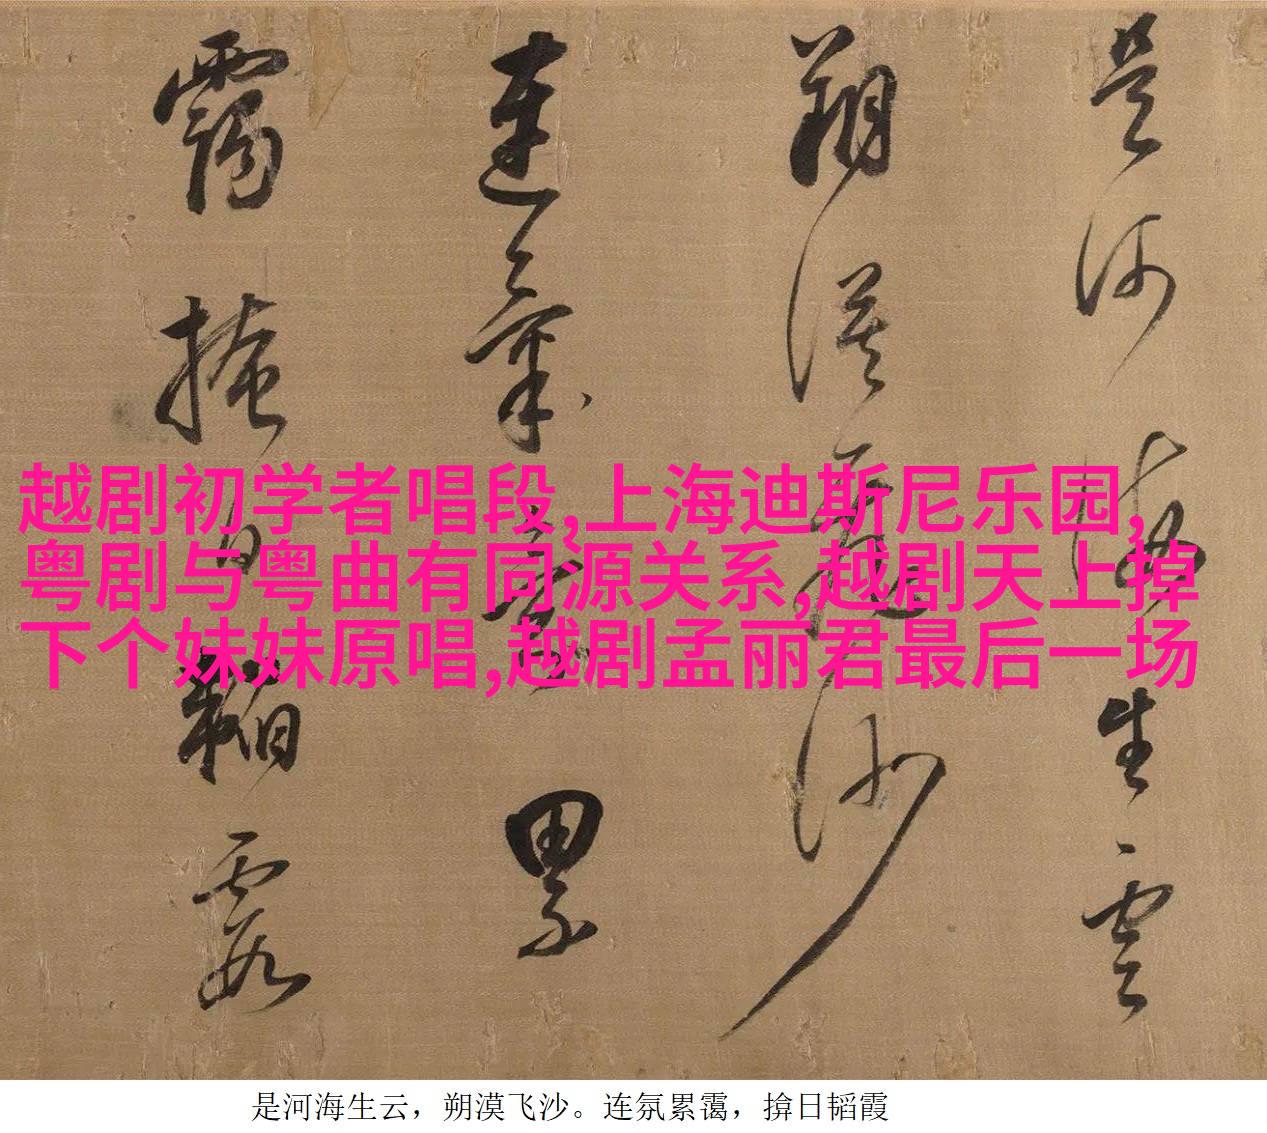 是河海生雲
朔漠飛沙
連氛累
靄掩日韜霞
越剧初学者唱段,上海迪斯尼乐园,
粤剧与粤曲有同源关系,越剧天上掉
下个妹妹原唱,越剧孟丽君最后一场
是河海生云，朔漠飞沙。连氛累霭，揜日韬霞